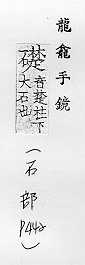 龍龕手鏡
礎音楚柱下
大石也
(石部
P442)